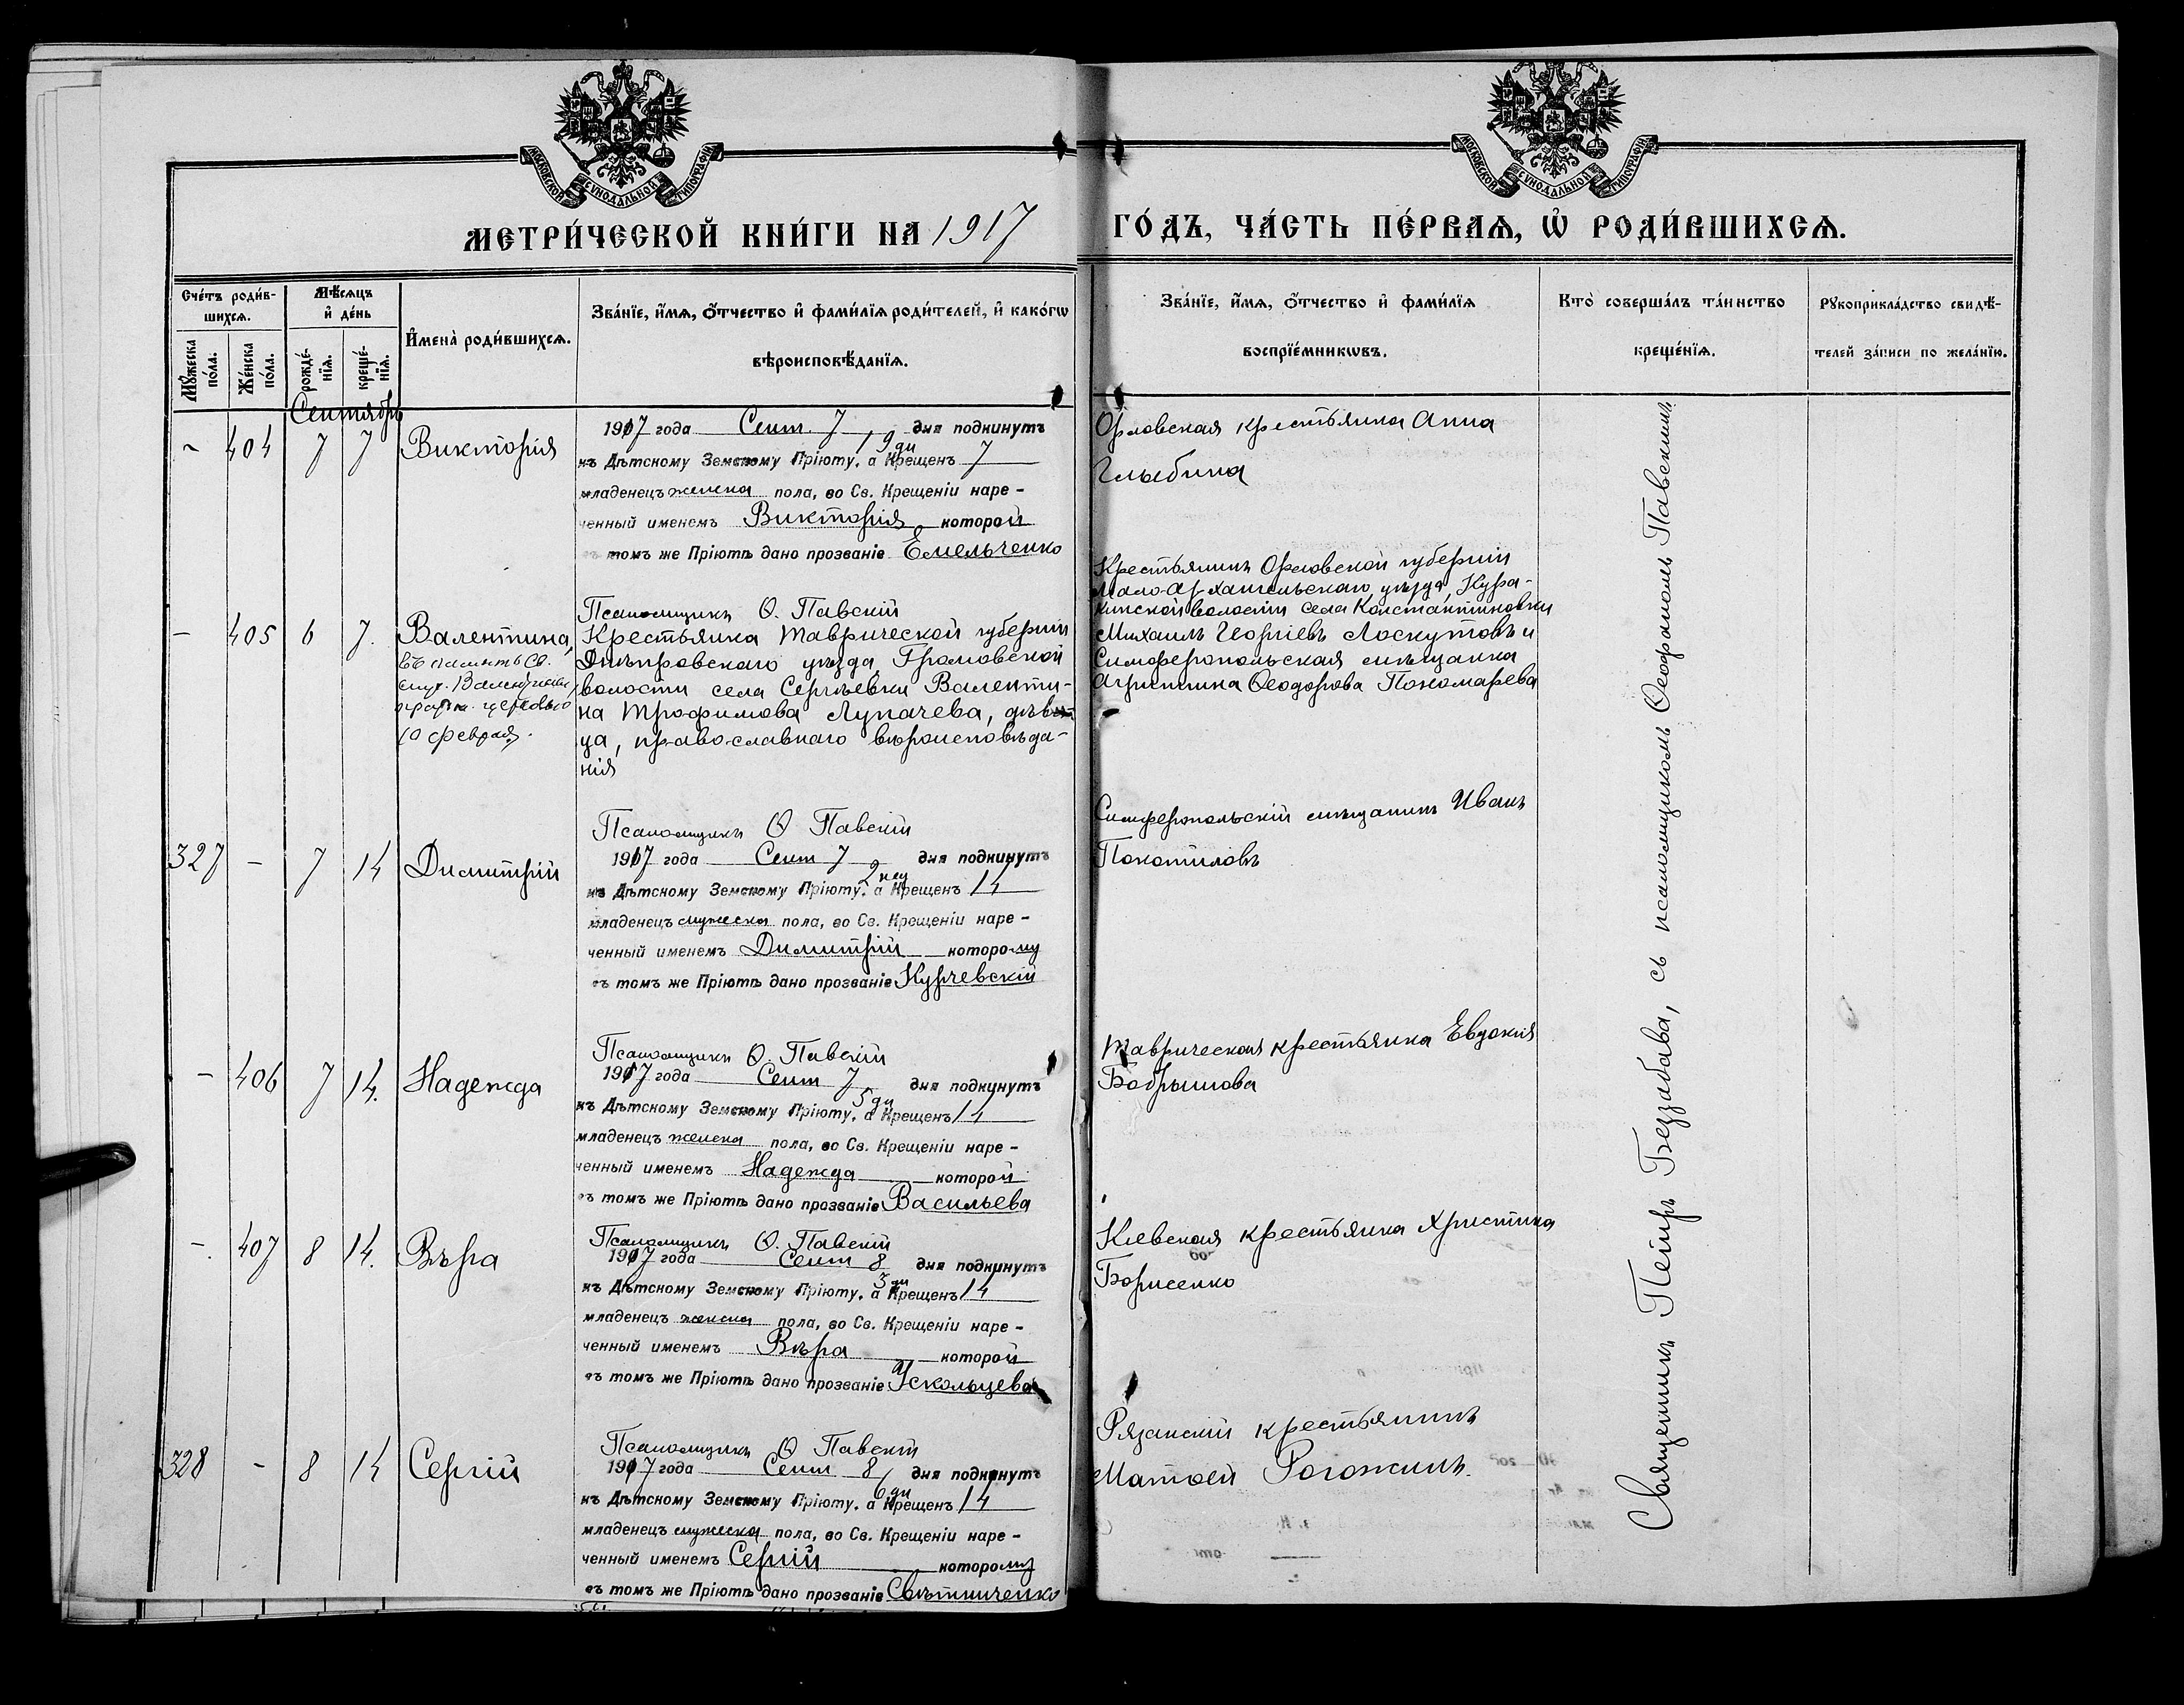 МОСКОВСКОЙ СѴНОДАЛЬНОЙ ТИПОГРАФІИ
МОСКОВСКОЙ СѴНОДАЛЬНОЙ ТИПОГРАФІИ
МЕТРИ́ЧЕСКОЙ КНИ́ГИ НА 1917 ГО́ДЪ, ЧА́СТЬ ПЕ́РВАѦ, Ѡ҆ РОДИ́ВШИХСѦ.
Сче́тъ роди́в-
шихсѧ.
Мꙋ́жеска по́ла.
Же́нска по́ла.
Мѣ́сѧцъ
и҆ де́нь
рожде́-
нїѧ.
креще́-
нїѧ.
И҆мена̀ роди́вшихсѧ.
Зва́нїе, и҆́мѧ, ѻ҆́тчество и҆ фами́лїѧ роди́телей, и҆ како́гѡ
вѣроисповѣ́данїѧ.
Зва́нїе, и҆́мѧ, ѻ҆́тчество и҆ фами́лїѧ
воспрїе́мникѡвъ.
Кто̀ соверша́лъ та́инство
креще́нїѧ.
Рꙋкоприкла́дство свидѣ́-
телей за́писи по жела́нїю.
Сентябрь
~ 404 7 7 Виктория
1917 года Сент. 7 дня подкинутъ
19 дн
къ Дѣтскому Земскому Пріюту, а Крещен 7
младенецъ женска пола, во Св. Крещеніи наре-
ченный именемъ Виктория которой
въ томъ же Пріютѣ дано прозваніе Емельченко
Орловская крестьянка Анна
Глыбина
Псаломщикъ Ѳ. Павскій
– 405 6 7. Валентина,
въ память св.
муч. Валентины,
праздн. церковью
10 февраля.
Крестьянка Таврической губерніи
Днѣпровскаго уѣзда, Громовской
волости села Сергѣевки Валенти-
на Трофимова Лупачева, дѣви-
ца, православнаго вѣроисповѣда-
нія
Крестьянинъ Орловской губерніи
Мало-Архангельскаго уѣзда, Кура-
кинской волости села Константиновки
Михаилъ Георгіевъ Лоскутовъ и
Симферопольская мѣщанка
Агриппина Ѳеодорова Пономарева
Псаломщикъ Ѳ Павскій
327 – 7 14 Димитрій
1917 года Сент 7 дня подкинутъ
2 нед
къ Дѣтскому Земскому Пріюту, а Крещен 14
младенецъ мужеска пола, во Св. Крещеніи наре-
ченный именемъ Димитрій которому
въ томъ же Пріютѣ дано прозваніе Курчевскій
Симферопольскій мѣщанинъ Иванъ
Покотиловъ
Псаломщикъ Ѳ. Павскій
– 406 7 14. Надежда
1917 года Сент 7 дня подкинутъ
5 дн
къ Дѣтскому Земскому Пріюту, а Крещен 14
младенецъ женска пола, во Св. Крещеніи наре-
ченный именемъ Надежда которой
въ томъ же Пріютѣ дано прозваніе Васильева
Таврическая крестьянка Евдокия
Бобрышова
Псаломщикъ Ѳ. Павскій
–. 407 8 14. Вѣра
1917 года Сент 8 дня подкинутъ
3 дн
къ Дѣтскому Земскому Пріюту, а Крещен 14
младенецъ женска пола, во Св. Крещеніи наре-
ченный именемъ Вѣра которой
въ томъ же Пріютѣ дано прозваніе
Киевская крестьянка Христина
Борисенко
Псаломщикъ Ѳ Павскій
328 – 8 14 Сергій
1917 года Сент 8 дня подкинутъ
6 дн
къ Дѣтскому Земскому Пріюту, а Крещен 14
младенецъ мужеска пола, во Св. Крещеніи наре-
ченный именемъ Сергій которому
въ томъ же Пріютѣ дано прозваніе Свѣтличенко
Рязанскій крестьянинъ
Матѳей Рогожинъ.
Священникъ Петръ Беззабава, съ псаломщикомъ Ѳеофаномъ Павскимъ